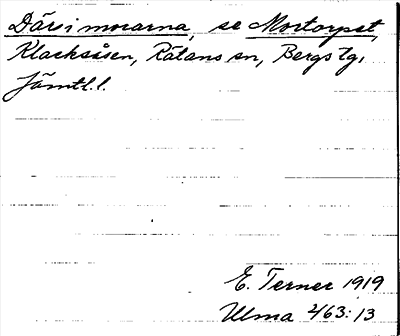 Därsimorarna, se Mortorpet,
Klacksåsen, Rätans sn, Bergs tg,
Jämtl. l.
E. Terner 1919
Ulma 2/63:13